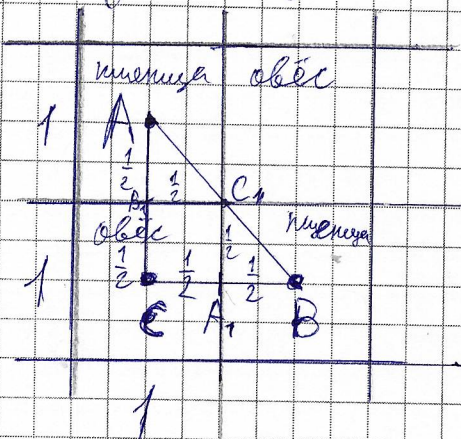 пшеница овёс
1 A
1/2 1/2
B₁ C₁
овёс 1/2 пшеница
1 1/2 1/2 1/2
C A₁ B
1